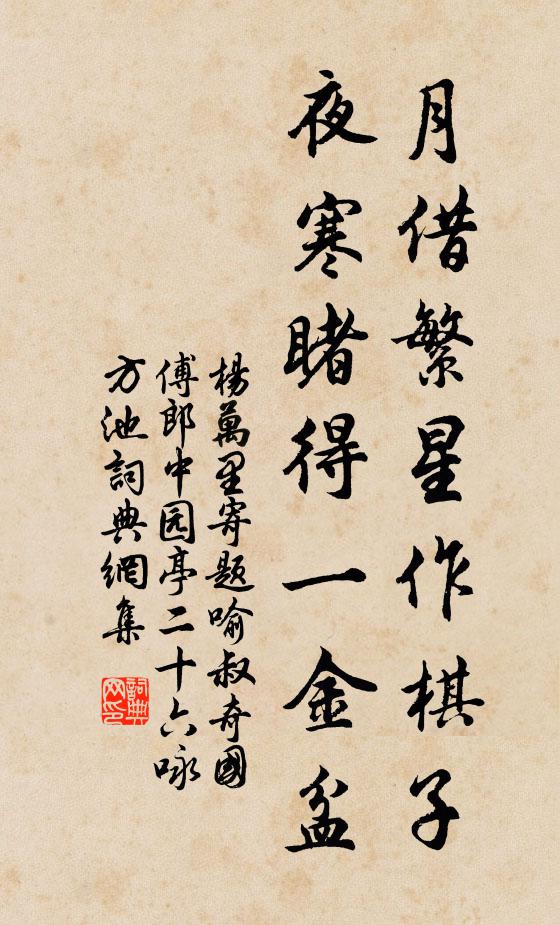 月借繁星作棋子
夜寒睹得一金盆
楊萬里寄题喻叔奇國
傅郎中园亭二十六咏
方池詞典網集
詞典网印